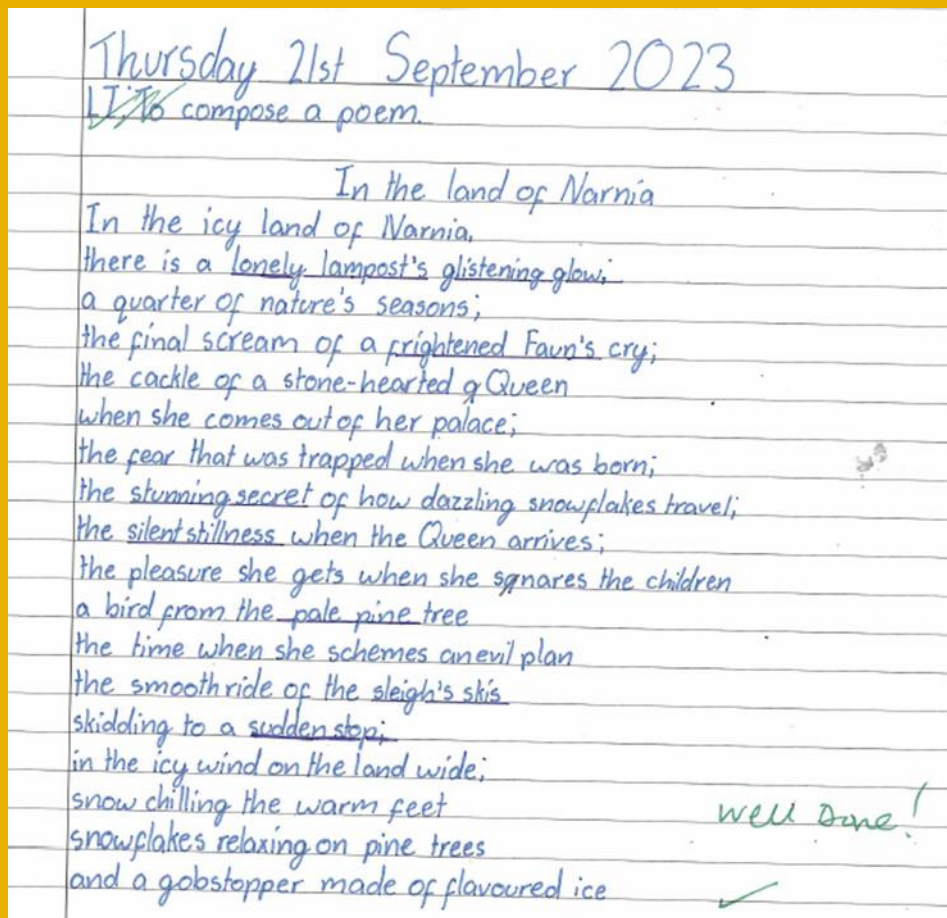 Thursday 21st September 2023
LI: To compose a poem.
In the land of Narnia
In the icy land of Narnia,
there is a lonely lampost's glistening glow;
a quarter of nature's seasons;
the final scream of a frightened Faun's cry;
the cackle of a stone-hearted q Queen
when she comes out of her palace;
the fear that was trapped when she was born;
the stunning secret of how dazzling snowflakes travel;
the silent stillness when the Queen arrives;
the pleasure she gets when she snares the children
a bird from the pale pine tree
the time when she schemes an evil plan
the smooth ride of the sleigh's skis
skidding to a sudden stop;
in the icy wind on the land wide;
snow chilling the warm feet
well Done!
snowflakes relaxing on pine trees
and a gobstopper made of flavoured ice